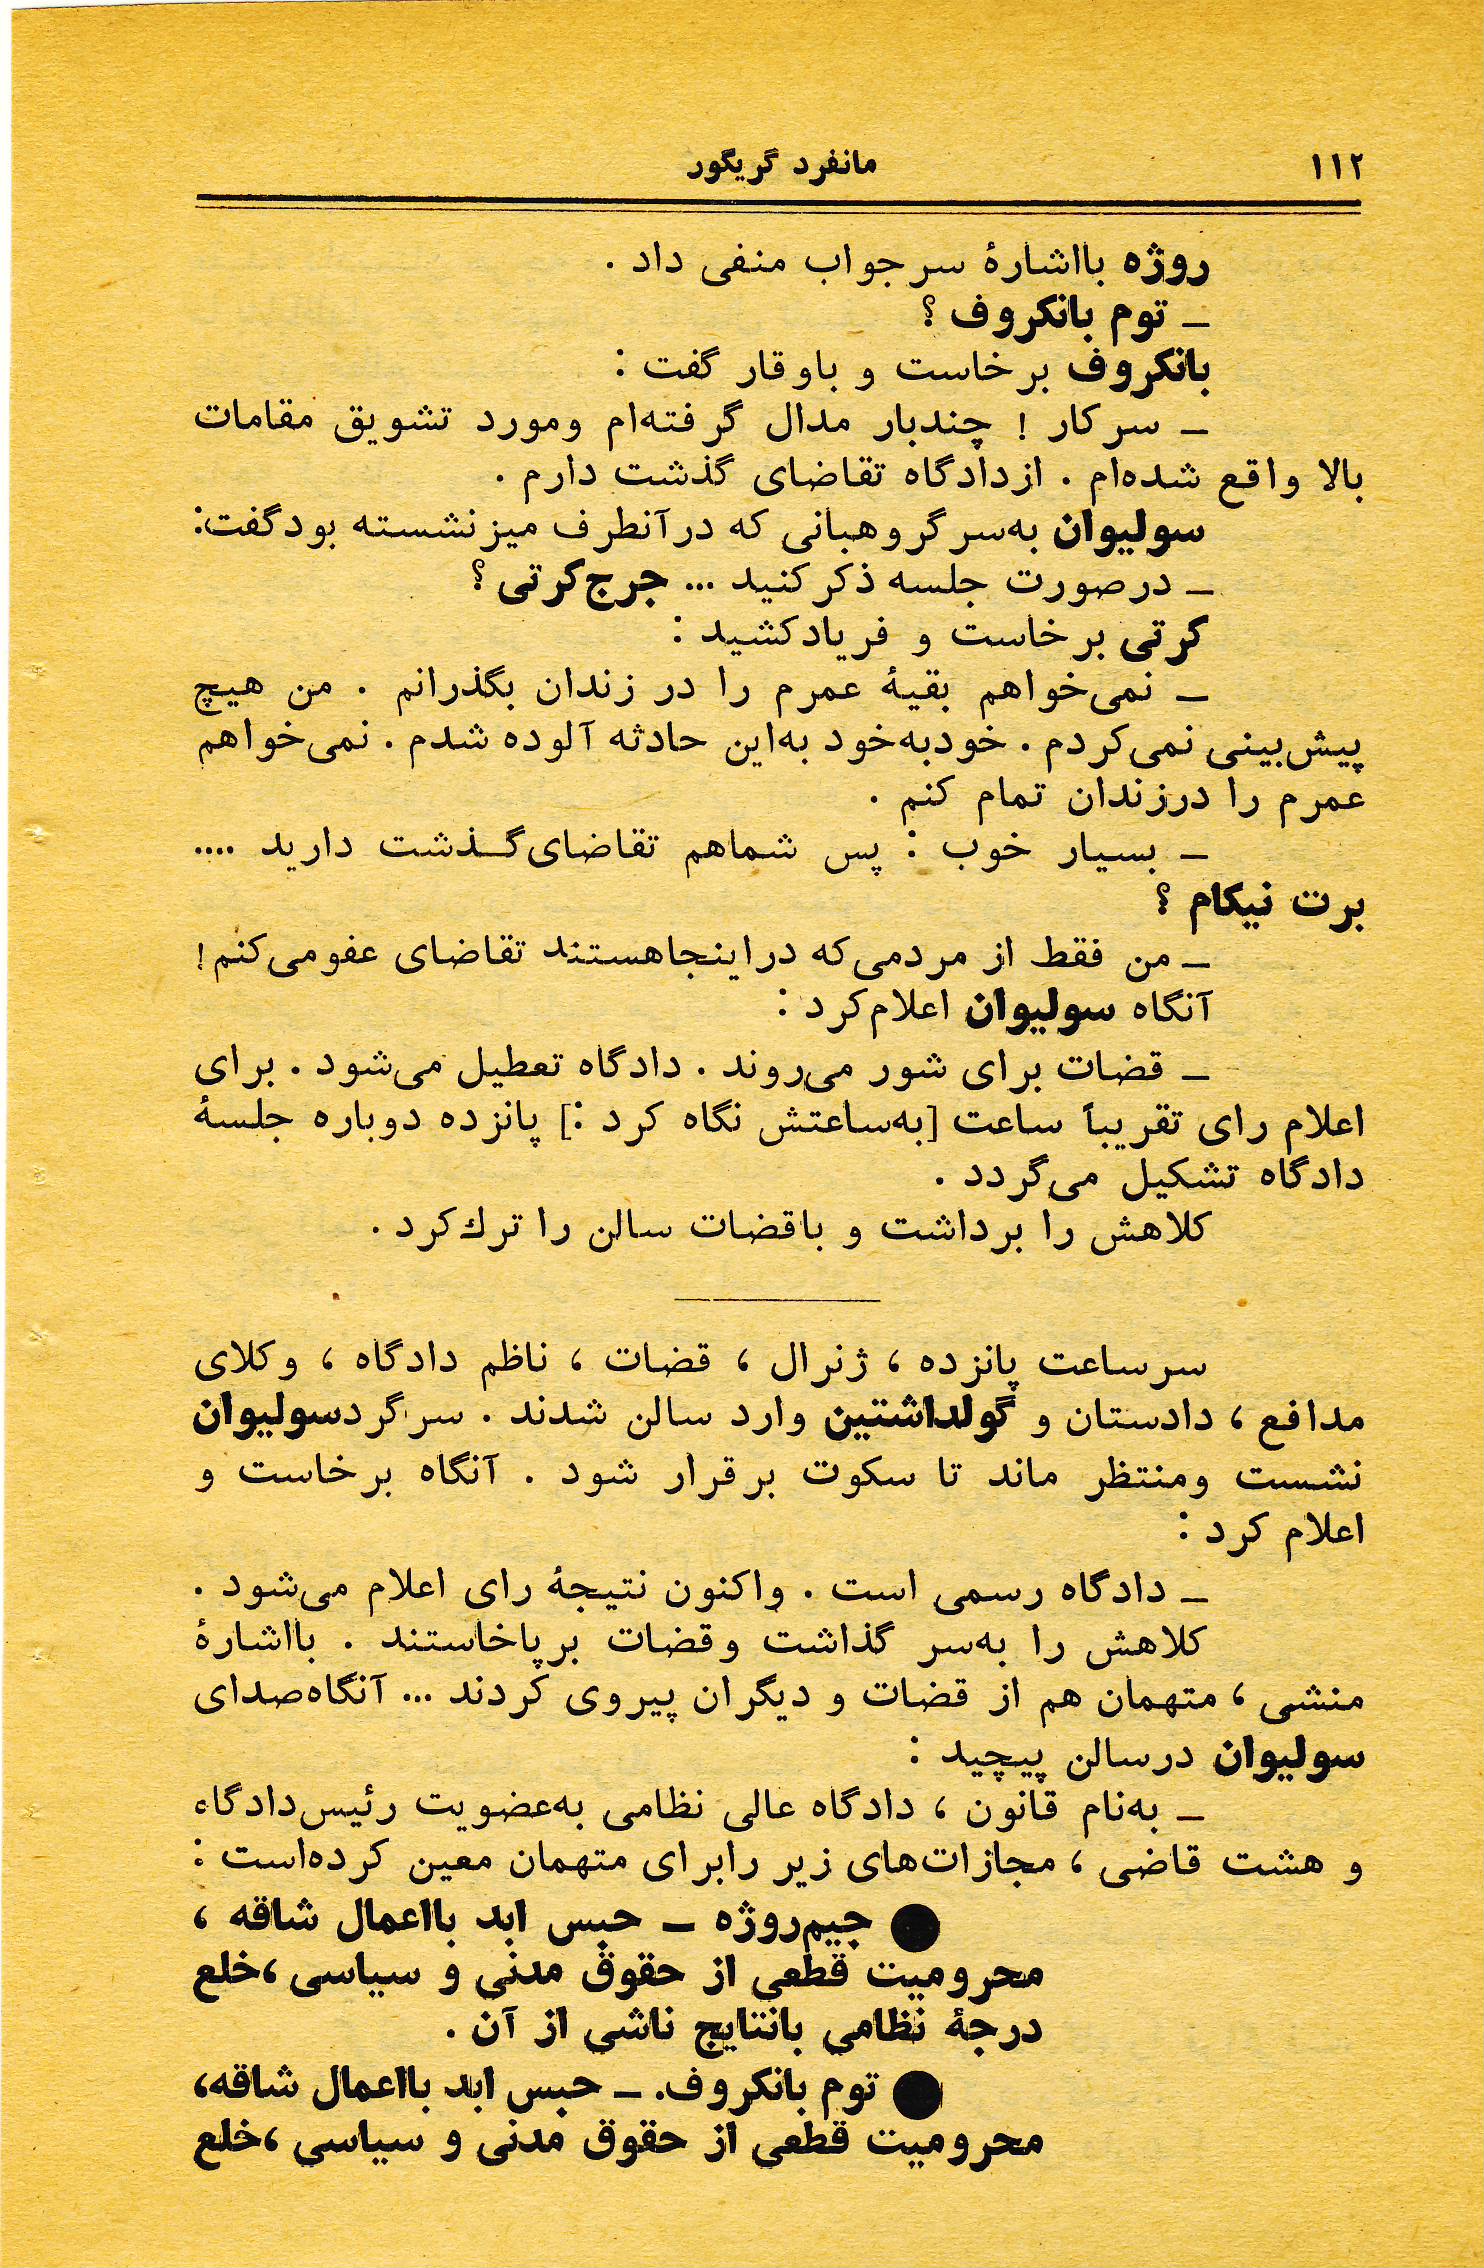 ۱۱۲
مانفرد گریگور
روژه بااشارهٔ سر جواب منفی داد .
ـ توم بانکروف ؟
بانکروف برخاست و باوقار گفت :
ـ سرکار ! چندبار مدال گرفته‌ام ومورد تشویق مقامات
بالا واقع شده‌ام . ازدادگاه تقاضای گذشت دارم .
سولیوان به‌سرگروهبانی که درآنطرف میزنشسته بودگفت:
ـ درصورت جلسه ذکرکنید ... جرج‌کرتی ؟
کرتی برخاست و فریادکشید :
ـ نمی‌خواهم بقیهٔ عمرم را در زندان بگذرانم . من هیچ
پیش‌بینی نمی‌کردم . خودبه‌خود به‌این حادثه آلوده شدم . نمی‌خواهم
عمرم را درزندان تمام کنم .
ـ بسیار خوب : پس شماهم تقاضای‌گـذشت دارید ....
برت نیکام ؟
ـ من فقط از مردمی‌که دراینجاهستند تقاضای عفومی‌کنم!
آنگاه سولیوان اعلام‌کرد :
ـ قضات برای شور می‌روند . دادگاه تعطیل می‌شود . برای
اعلام رای تقریباً ساعت [به‌ساعتش نگاه کرد :] پانزده دوباره جلسهٔ
دادگاه تشکیل می‌گردد .
کلاهش را برداشت و باقضات سالن را ترك‌کرد .
سرساعت پانزده ، ژنرال ، قضات ، ناظم دادگاه ، وکلای
مدافع ، دادستان و گولداشتین وارد سالن شدند . سرگردسولیوان
نشست ومنتظر ماند تا سکوت برقرار شود . آنگاه برخاست و
اعلام کرد :
ـ دادگاه رسمی است . واکنون نتیجهٔ رای اعلام می‌شود .
کلاهش را به‌سر گذاشت وقضات برپاخاستند . بااشارهٔ
منشی ، متهمان هم از قضات و دیگران پیروی کردند ... آنگاه‌صدای
سولیوان درسالن پیچید :
ـ به‌نام قانون ، دادگاه عالی نظامی به‌عضویت رئیس‌دادگاه
و هشت قاضی ، مجازات‌های زیر رابرای متهمان معین کرده‌است :
● جیم‌روژه ـ حبس ابد بااعمال شاقه ،
محرومیت قطعی از حقوق مدنی و سیاسی ،خلع
درجهٔ نظامی بانتایج ناشی از آن .
● توم بانکروف. ـ حبس ابد بااعمال شاقه،
محرومیت قطعی از حقوق مدنی و سیاسی ،خلع